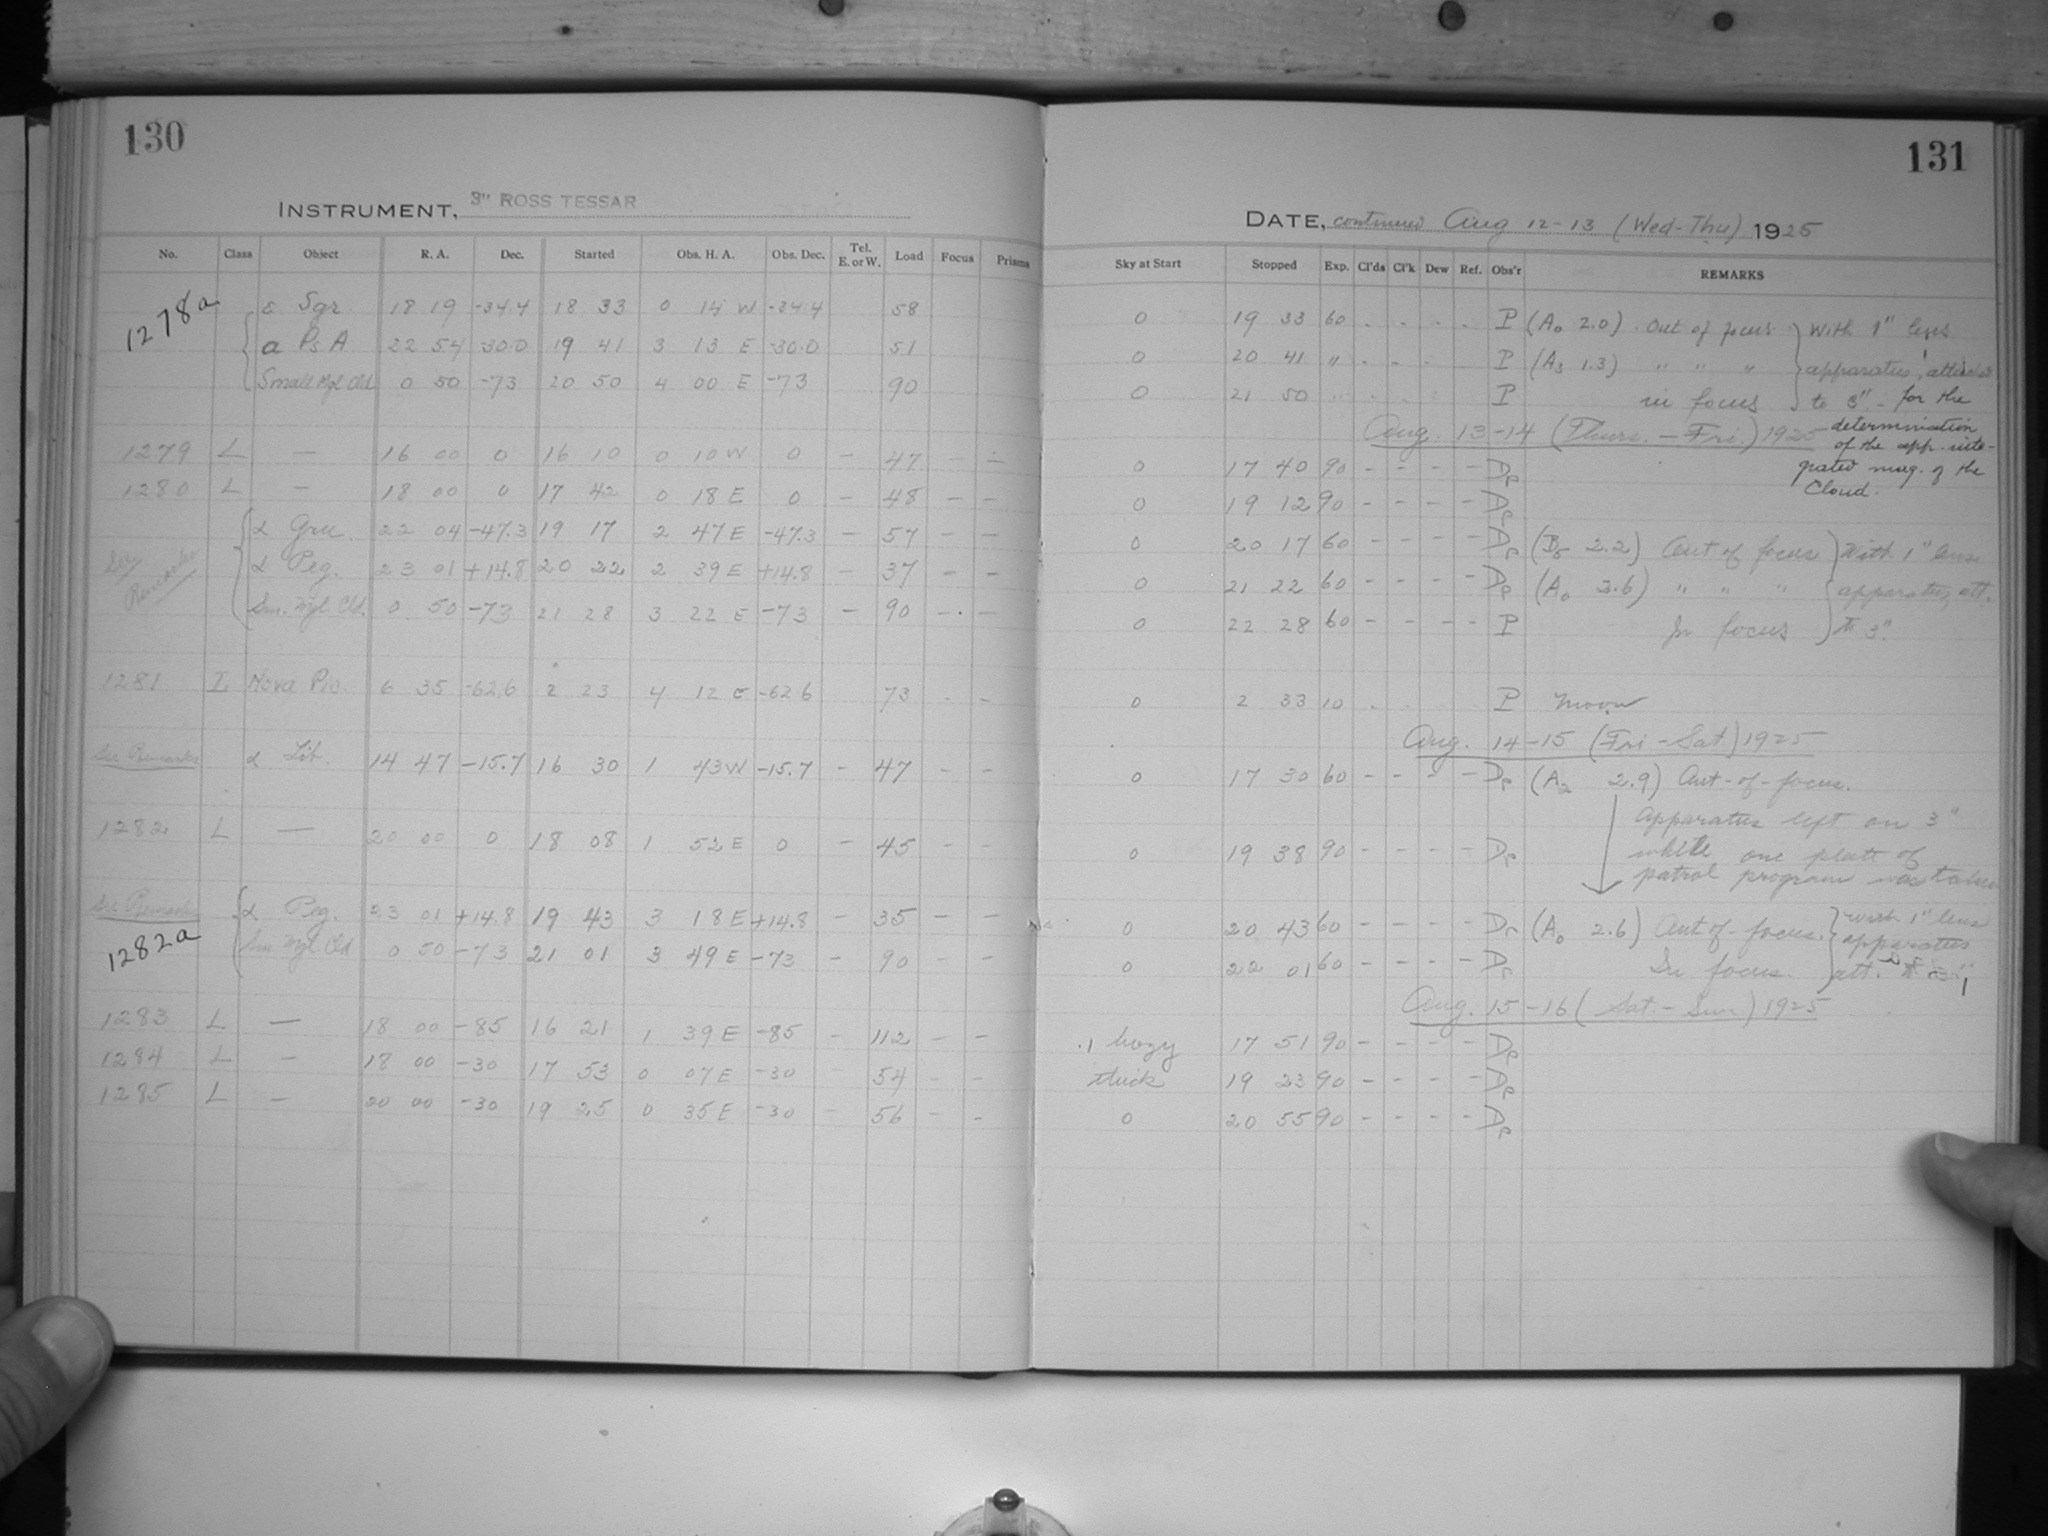 130
INSTRUMENT, 3" ROSS TESSAR
No. Class Object R. A. Dec. Started Obs. H. A. Obs. Dec. Tel. E. or W. Load Focus Prisms
1278a ε Sgr 18 19 -34.4 18 33 0 14 W -34.4 58
α Ps A 22 54 -30.0 19 41 3 13 E -30.0 51
Small Mgl Cld 0 50 -73 20 50 4 00 E -73 90
1279 L — 16 00 0 16 10 0 10 W 0 — 47 — —
1280 L — 18 00 0 17 42 0 18 E 0 — 48 — —
α Gru. 22 04 -47.3 19 17 2 47 E -47.3 — 57 — —
See Remarks α Peg. 23 01 +14.8 20 22 2 39 E +14.8 — 37 — —
Sm. Mgl. Cld. 0 50 -73 21 28 3 22 E -73 — 90 — —
1281 I Nova Pic. 6 35 -62.6 2 23 4 12 E -62.6 73 - -
See Remarks α Lib. 14 47 -15.7 16 30 1 43 W -15.7 — 47 — —
1282 L — 20 00 0 18 08 1 52 E 0 — 45 — —
See Remarks α Peg. 23 01 +14.8 19 43 3 18 E +14.8 — 35 — —
1282a Sm Mgl Cld 0 50 -73 21 01 3 49 E -73 — 90 — —
1283 L — 18 00 -85 16 21 1 39 E -85 — 112 — —
1284 L — 18 00 -30 17 53 0 07 E -30 — 54 — —
1285 L — 20 00 -30 19 25 0 35 E -30 — 56 — —
131
DATE, continued Aug 12-13 (Wed-Thu) 1925
Sky at Start Stopped Exp. Cl'ds Cl'k Dew Ref. Obs'r REMARKS
0 19 33 60 - - - - P (A0 2.0) . Out of focus } With 1" lens
0 20 41 " - - - - P (A3 1.3) " " " } apparatus, attached
0 21 50 " - - - P in focus } to 3" - for the
Aug. 13-14 (Thurs. - Fri.) 1925 determination
of the app. inte-
0 17 40 90 - - - - grated mag. of the
Cloud.
0 19 12 90 - - - -
0 20 17 60 - - - - (B5 2.2) Out of focus } With 1" lens
0 21 22 60 - - - - (A0 2.6) " " " } apparatus, att.
0 22 28 60 - - - - P In focus } to 3".
0 2 33 10 - - P Moon
Aug. 14-15 (Fri - Sat) 1925
0 17 30 60 - - - - (A2 2.9) Out-of-focus.
Apparatus left on 3"
0 19 38 90 - - - - while one plate of
patrol program was taken
0 20 43 60 - - - - (A0 2.6) Out of-focus. } With 1" lens
apparatus
0 22 01 60 - - - - In focus. } att. to 3"
Aug. 15-16 (Sat. - Sun) 1925
.1 hazy 17 51 90 - - - -
thick 19 23 90 - - - -
0 20 55 90 - - - -